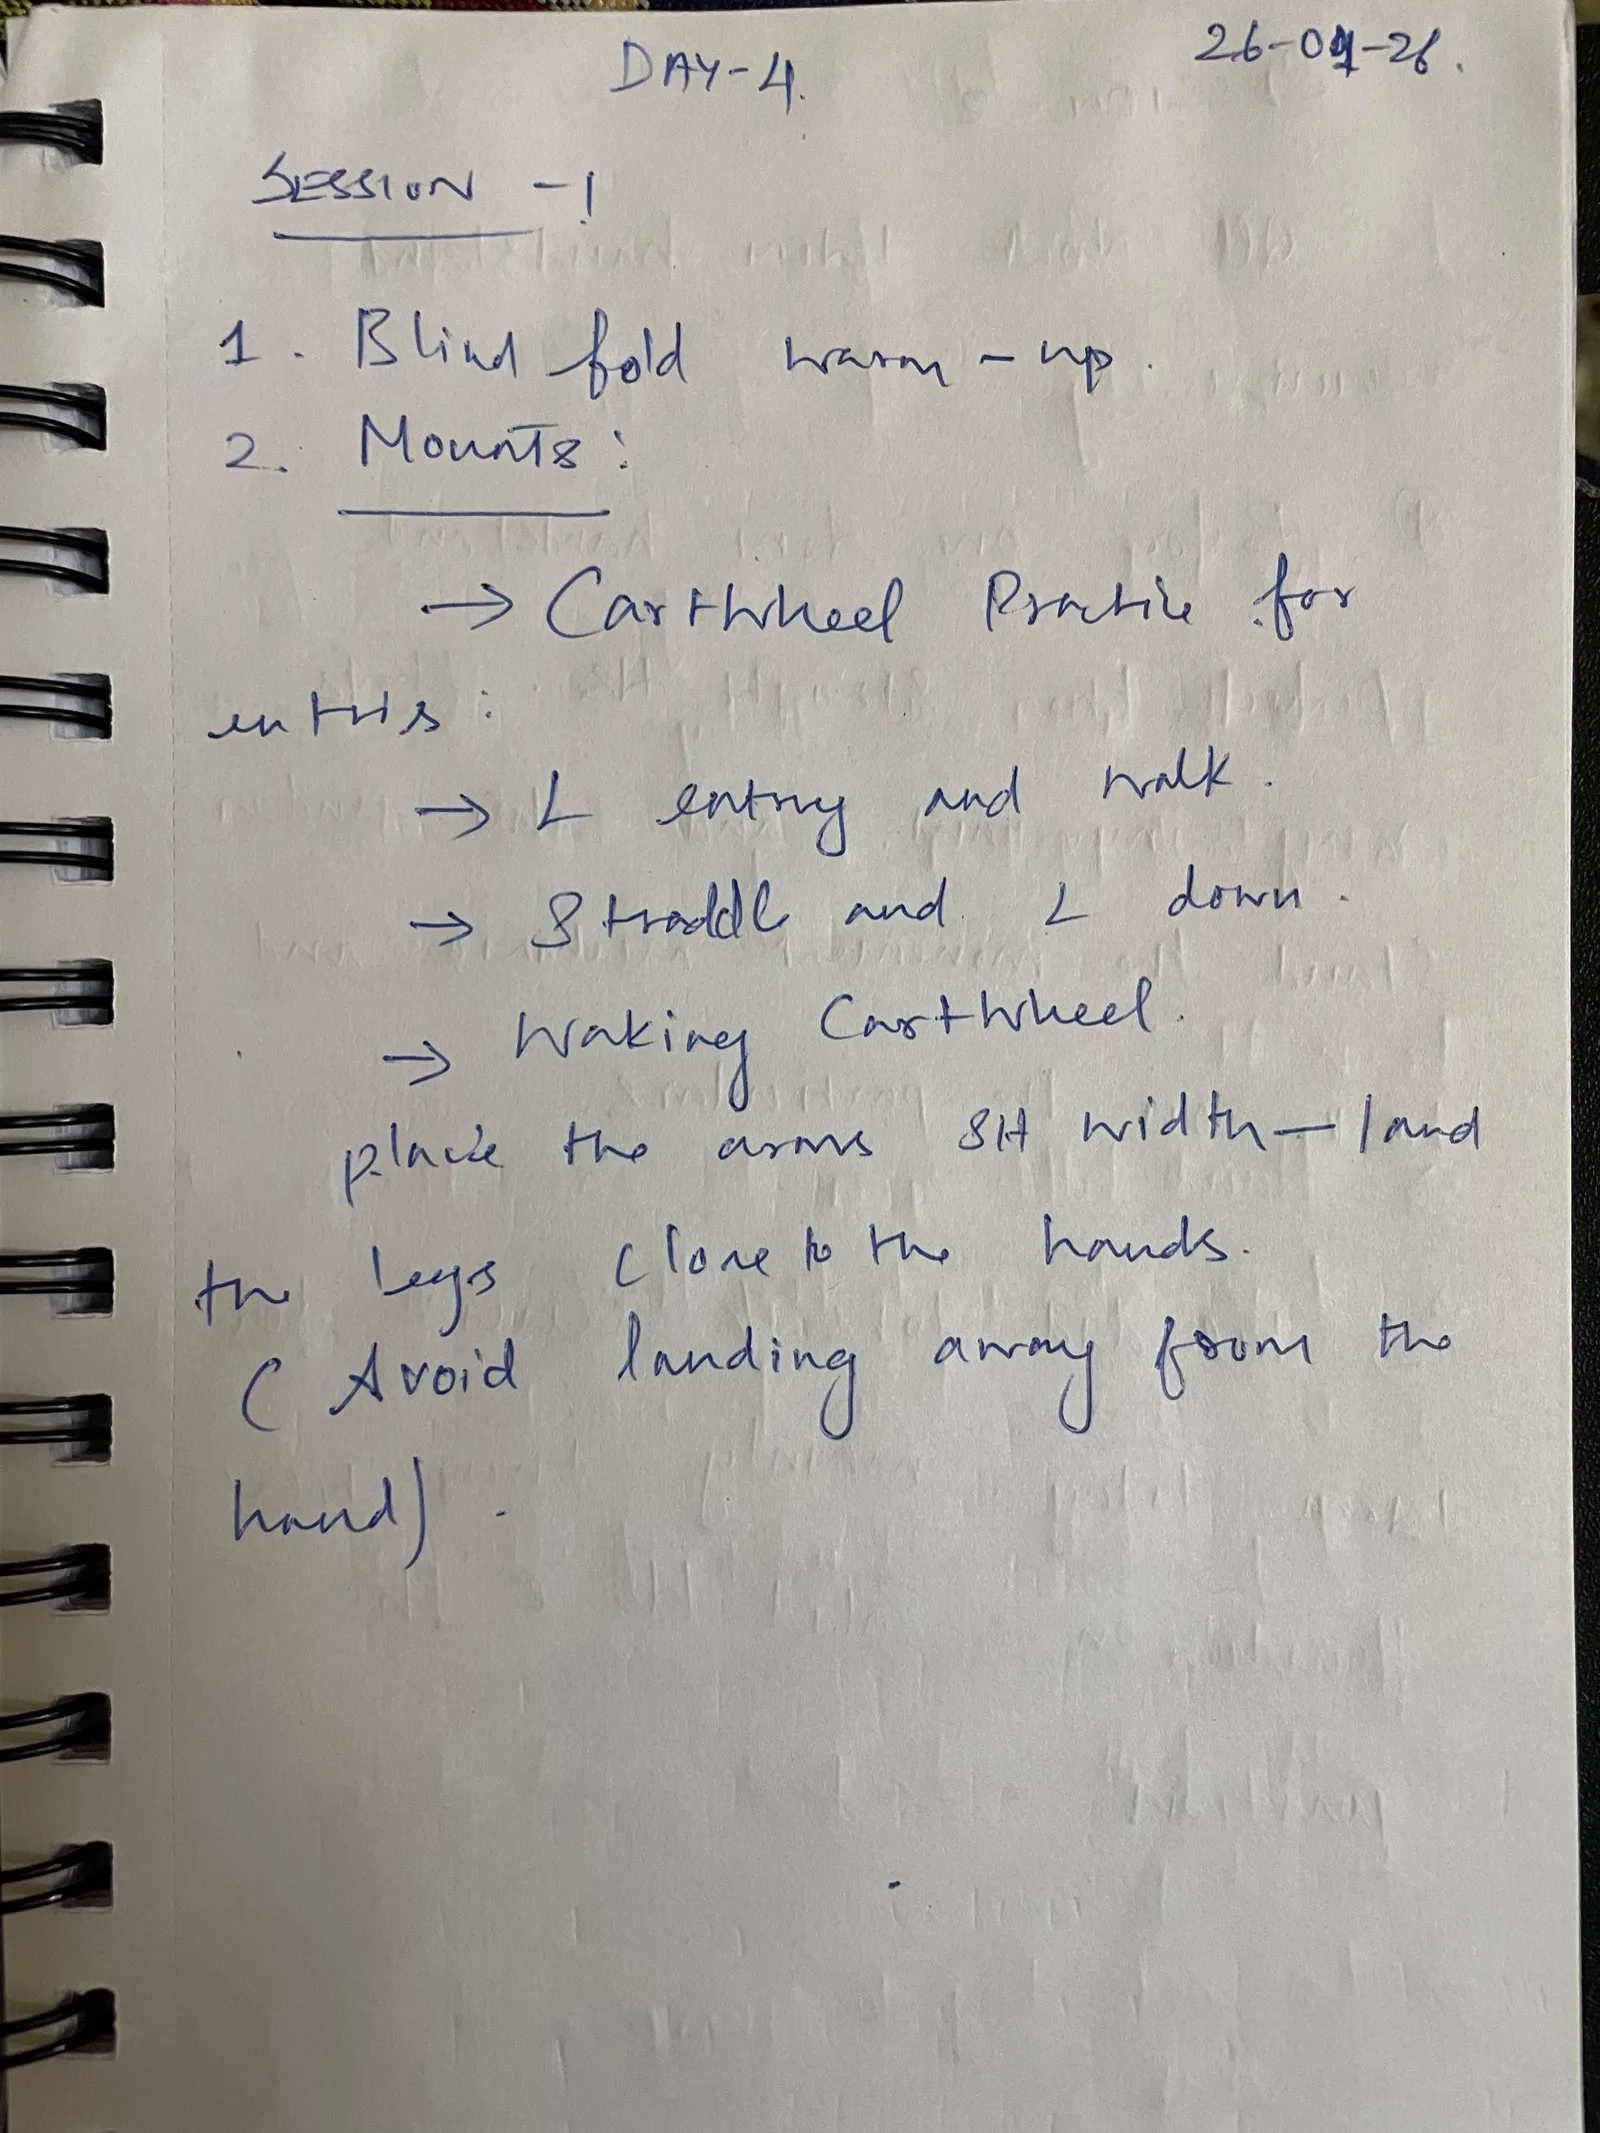 DAY-4.
26-01-26.
SESSION -1
1. Blind fold warm-up.
2. Mounts:
→ Cartwheel Practice for
entris:
→ L entry and walk.
→ Straddle and L down.
→ Waking Cartwheel.
place the arms SH width — land
the legs close to the hands.
(Avoid landing away from the
hand).